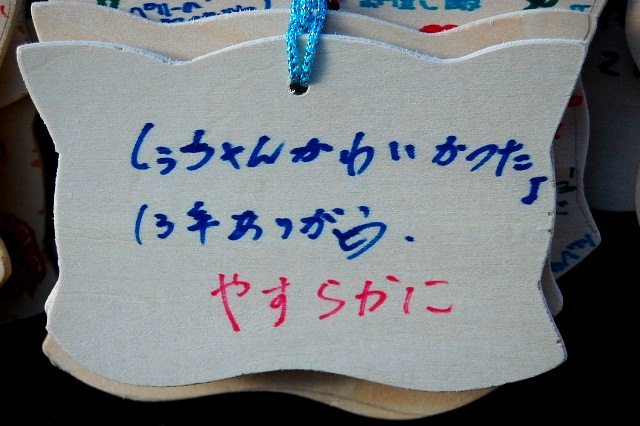 しぅちゃんかわいかったよ
13年ありがとう.
やすらかに